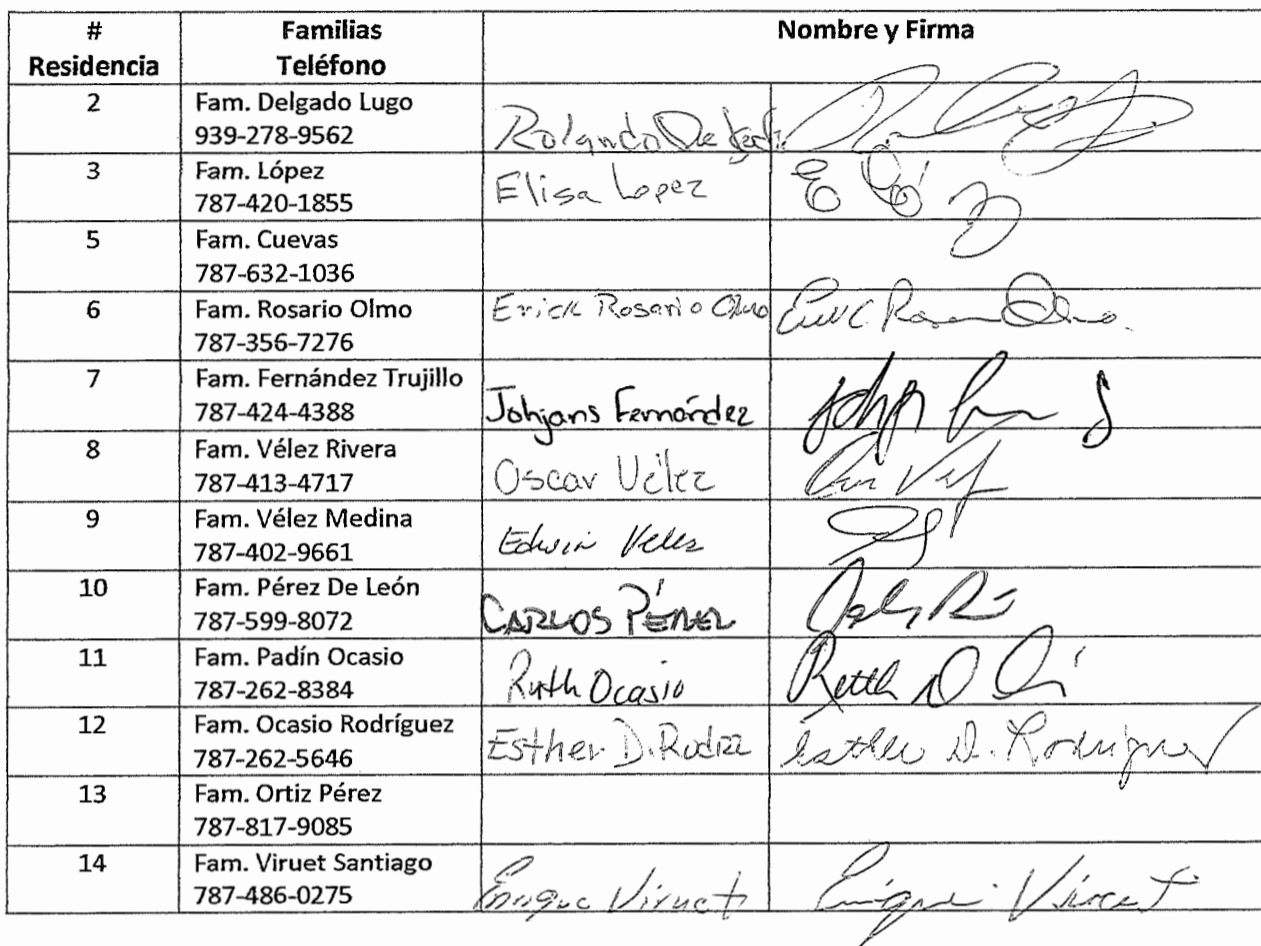 # Residencia
Familias Teléfono
Nombre y Firma
2
Fam. Delgado Lugo
939-278-9562
Rolando Delgado
3
Fam. López
787-420-1855
Elisa Lopez
5
Fam. Cuevas
787-632-1036
6
Fam. Rosario Olmo
787-356-7276
Erick Rosario Olmo
7
Fam. Fernández Trujillo
787-424-4388
Johjans Fernández
8
Fam. Vélez Rivera
787-413-4717
Oscar Vélez
9
Fam. Vélez Medina
787-402-9661
Edwin Velez
10
Fam. Pérez De León
787-599-8072
CARLOS PÉREZ
11
Fam. Padín Ocasio
787-262-8384
Ruth Ocasio
12
Fam. Ocasio Rodríguez
787-262-5646
Esther D. Rodrz Esther D. Rodriguez
13
Fam. Ortiz Pérez
787-817-9085
14
Fam. Viruet Santiago
787-486-0275
Enrique Viruet Enrique Viruet